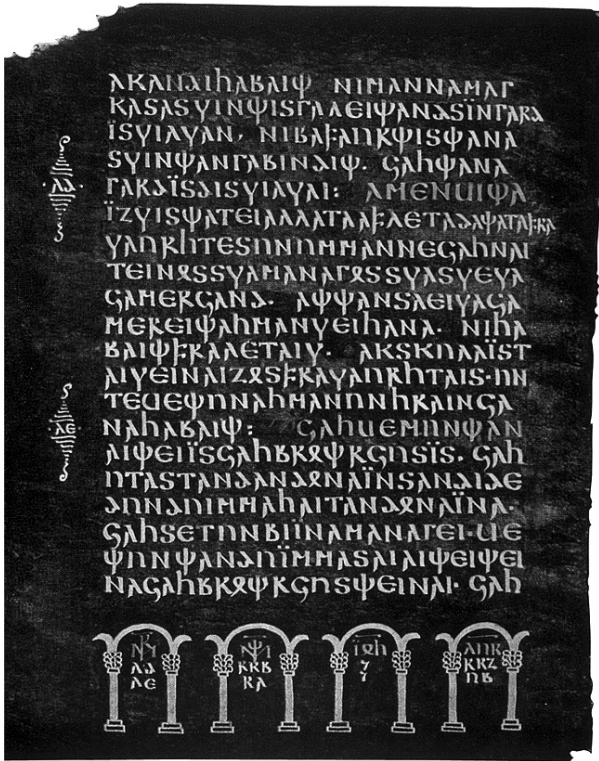 𐌰𐌺𐌰𐌽𐌳𐌹𐌷𐌰𐌱𐌰𐌹𐌸 𐌽𐌹𐌼𐌰𐌽𐌽𐌰𐌼𐌰𐌲
𐌺𐌰𐍃𐌰𐍃𐍅𐌹𐌽𐌸𐌹𐍃𐌲𐌰𐌻𐌴𐌹𐌸𐌰𐌽𐌳𐍃𐌹̈𐌽𐌲𐌰𐍂𐌳
𐌹̈𐍃𐍅𐌹𐌻𐍅𐌰𐌽· 𐌽𐌹𐌱𐌰𐍆𐌰𐌿𐍂𐌸𐌹𐍃𐌸𐌰𐌽𐌰
·𐌻𐌳· 𐍃𐍅𐌹𐌽𐌸𐌰𐌽𐌲𐌰𐌱𐌹𐌽𐌳𐌹𐌸· 𐌾𐌰𐌷𐌸𐌰𐌽𐌰
𐌲𐌰𐍂𐌳𐌹̈𐍃𐌳𐌹𐍃𐍅𐌹𐌻𐍅𐌰𐌹: 𐌰𐌼𐌴𐌽𐌵𐌹𐌸𐌰
𐌹̈𐌶𐍅𐌹𐍃𐌸𐌰𐍄𐌴𐌹𐌰𐌻𐌻𐌰𐍄𐌰𐌰𐍆𐌻𐌴𐍄𐌰𐌳𐌰𐌸𐌰𐍄𐌰𐍆𐍂𐌰
𐍅𐌰𐌿𐍂𐌷𐍄𐌴𐍃𐌿𐌽𐌿𐌼𐌼𐌰𐌽𐌽𐌴𐌾𐌰𐌷𐌽𐌰𐌹
𐍄𐌴𐌹𐌽𐍉𐍃𐍃𐍅𐌰𐌼𐌰𐌽𐌰𐌲𐍉𐍃𐍃𐍅𐌰𐍃𐍅𐌴𐍅𐌰
𐌾𐌰𐌼𐌴𐍂𐌾𐌰𐌽𐌳· 𐌰𐌸𐌸𐌰𐌽𐍃𐌰𐌴𐌹𐍅𐌰𐌾𐌰
𐌼𐌴𐍂𐌴𐌹𐌸𐌰𐌷𐌼𐌰𐌽𐍅𐌴𐌹𐌷𐌰𐌽𐌰· 𐌽𐌹𐌷𐌰
𐌱𐌰𐌹𐌸𐍆𐍂𐌰𐌻𐌴𐍄𐌰𐌹𐍅· 𐌰𐌺𐍃𐌺𐌿𐌻𐌰𐌹̈𐍃𐍄
𐌰𐌹𐍅𐌴𐌹𐌽𐌰𐌹𐌶𐍉𐍃𐍆𐍂𐌰𐍅𐌰𐌿𐍂𐌷𐍄𐌰𐌹𐍃· 𐌿𐌽
𐍄𐌴𐌵𐌴𐌸𐌿𐌽𐌰𐌷𐌼𐌰𐌽𐌿𐌽𐌷𐍂𐌰𐌹𐌽𐌾𐌰
·𐌻𐌴· 𐌽𐌰𐌷𐌰𐌱𐌰𐌹𐌸: 𐌾𐌰𐌷𐌵𐌴𐌼𐌿𐌽𐌸𐌰𐌽
𐌰𐌹𐌸𐌴𐌹𐌹̈𐍃𐌾𐌰𐌷𐌱𐍂𐍉𐌸𐍂𐌾𐌿𐍃𐌹̈𐍃· 𐌾𐌰𐌷
𐌿𐍄𐌰𐍃𐍄𐌰𐌽𐌳𐌰𐌽𐌳𐍉𐌽𐌰𐌹̈𐌽𐍃𐌰𐌽𐌳𐌹𐌳𐌴
𐌳𐌿𐌽𐌳𐌿𐌹𐌼𐌼𐌰𐌷𐌰𐌹𐍄𐌰𐌽𐌳𐍉𐌽𐌰𐌹̈𐌽𐌰·
𐌾𐌰𐌷𐍃𐌴𐍄𐌿𐌽𐌱𐌹𐌹𐌽𐌰𐌼𐌰𐌽𐌰𐌲𐌴𐌹· 𐌵𐌴
𐌸𐌿𐌽𐌸𐌰𐌽𐌳𐌿𐌹̈𐌼𐌼𐌰𐍃𐌰𐌹𐌰𐌹𐌸𐌴𐌹𐌸𐌴𐌹
𐌽𐌰𐌾𐌰𐌷𐌱𐍂𐍉𐌸𐍂𐌾𐌿𐍃𐌸𐌴𐌹𐌽𐌰𐌹· 𐌾𐌰𐌷
𐌻𐌳
𐌻𐌴